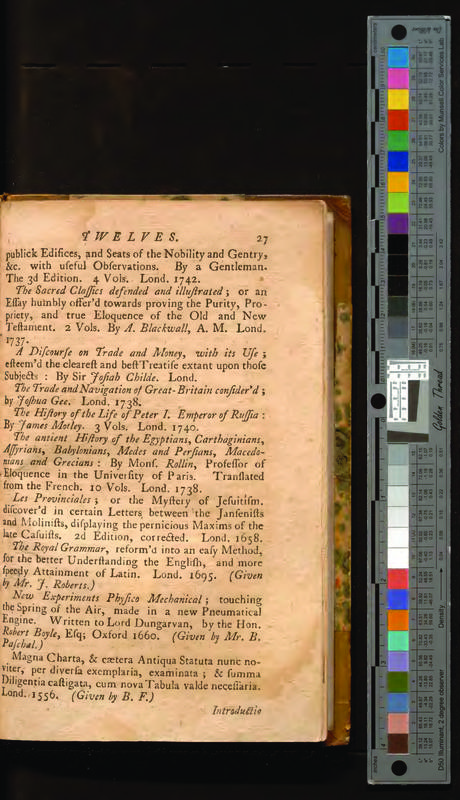 TWELVES. 27
publick Edifices, and Seats of the Nobility and Gentry,
&c. with uſeful Obſervations. By a Gentleman.
The 3d Edition. 4 Vols. Lond. 1742.
The Sacred Claſſics defended and illuſtrated; or an
Eſſay humbly offer'd towards proving the Purity, Pro-
priety, and true Eloquence of the Old and New
Teſtament. 2 Vols. By A. Blackwall, A. M. Lond.
1737.
A Diſcourſe on Trade and Money, with its Uſe;
eſteem'd the cleareſt and beſt Treatiſe extant upon thoſe
Subjects: By Sir Joſiah Childe. Lond.
The Trade and Navigation of Great-Britain conſider'd;
by Joſhua Gee. Lond. 1738.
The Hiſtory of the Life of Peter I. Emperor of Ruſſia:
By James Motley. 3 Vols. Lond. 1740.
The antient Hiſtory of the Egyptians, Carthaginians,
Aſſyrians, Babylonians, Medes and Perſians, Macedo-
nians and Grecians: By Monſ. Rollin, Profeſſor of
Eloquence in the Univerſity of Paris. Tranſlated
from the French. 10 Vols. Lond. 1738.
Les Provinciales; or the Myſtery of Jeſuitiſm.
diſcover'd in certain Letters between the Janſeniſts
and Moliniſts, diſplaying the pernicious Maxims of the
late Caſuiſts. 2d Edition, corrected. Lond. 1658.
The Royal Grammar, reform'd into an eaſy Method,
for the better Underſtanding the Engliſh, and more
ſpeedy Attainment of Latin. Lond. 1695. (Given
by Mr. J. Roberts.)
New Experiments Phyſico Mechanical; touching
the Spring of the Air, made in a new Pneumatical
Engine. Written to Lord Dungarvan, by the Hon.
Robert Boyle, Eſq; Oxford 1660. (Given by Mr. B.
Paſchal.)
Magna Charta, & cætera Antiqua Statuta nunc no-
viter, per diverſa exemplaria, examinata; & ſumma
Diligentia caſtigata, cum nova Tabula valde neceſſaria.
Lond. 1556. (Given by B. F.)
Introductio
Colors by Munsell Color Services Lab
Golden Thread
Density
D50 Illuminant, 2 degree observer
centimetres
inches